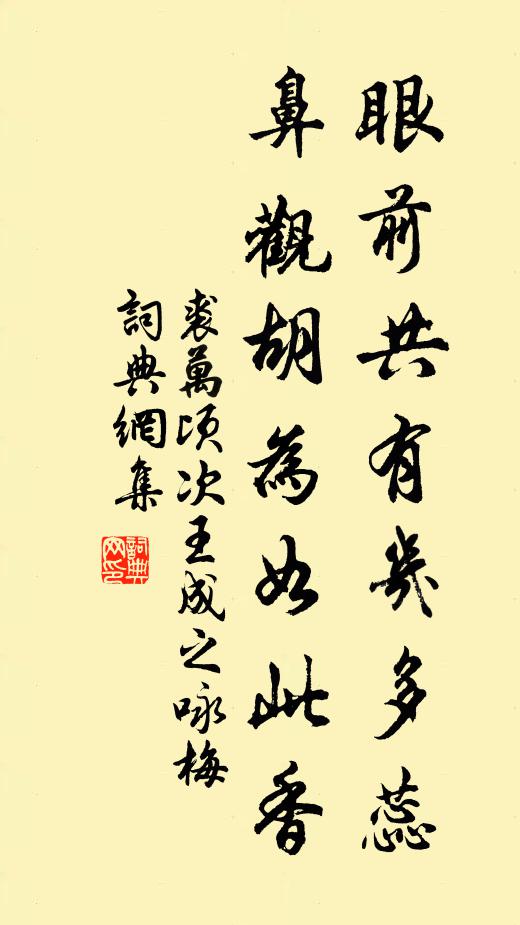 眼前共有幾多蕊
鼻觀胡為如此香
裘萬頃次王成之咏梅
詞典網集
詞典网印